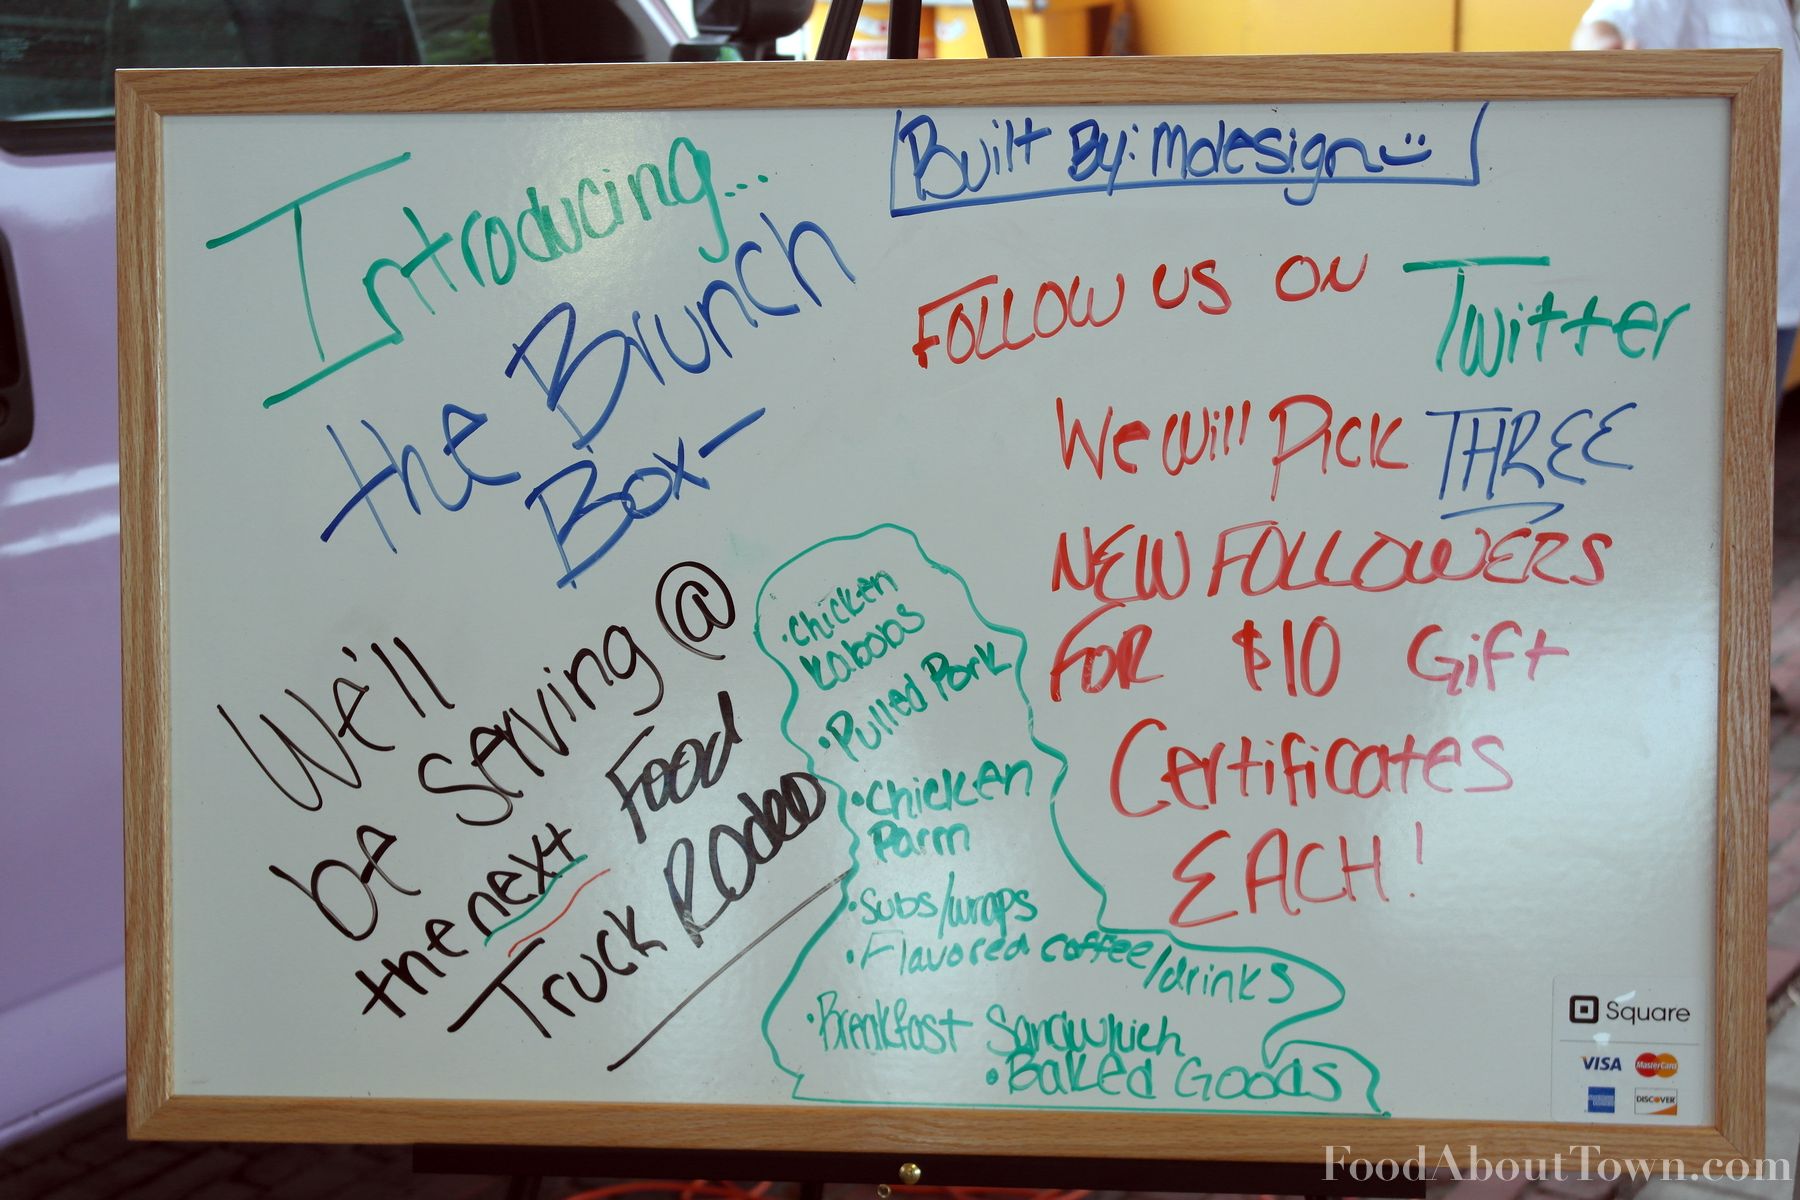 Introducing...
the Brunch
Box-
We'll
be Serving @
the next Food
Truck Rodeo
Built By: Mdesign
FOLLOW US ON Twitter
We Will Pick THREE
NEW FOLLOWERS
FOR $10 Gift
Certificates
EACH!
• Chicken
Kabobs
• Pulled Pork
• Chicken
Parm
• Subs/wraps
• Flavored coffee/drinks
• Breakfast Sandwhich
• Baked Goods
Square
VISA MasterCard
DISCOVER
FoodAboutTown.com